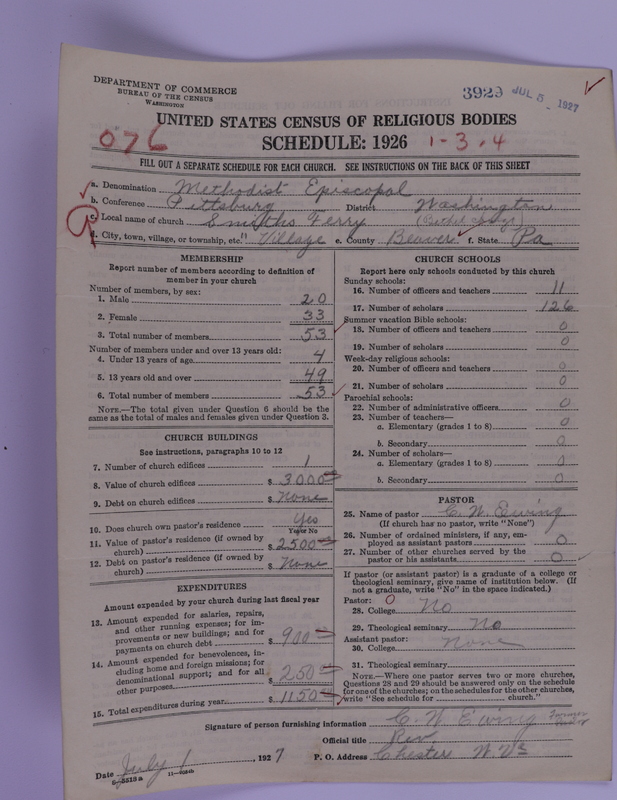 DEPARTMENT OF COMMERCE
BUREAU OF THE CENSUS
WASHINGTON
3929 JUL 5 1927
UNITED STATES CENSUS OF RELIGIOUS BODIES
076 SCHEDULE: 1926 1-3.4
FILL OUT A SEPARATE SCHEDULE FOR EACH CHURCH. SEE INSTRUCTIONS ON THE BACK OF THIS SHEET
a. Denomination Methodist Episcopal
b. Conference Pittsburg District Washington
c. Local name of church Smiths Ferry
d. City, town, village, or township, etc. Village e. County Beaver f. State Pa
MEMBERSHIP
Report number of members according to definition of
member in your church
Number of members, by sex:
1. Male 20
2. Female 33
3. Total number of members 53
Number of members under and over 13 years old:
4. Under 13 years of age 4
5. 13 years old and over 49
6. Total number of members 53
NOTE.—The total given under Question 6 should be the
same as the total of males and females given under Question 3.
CHURCH BUILDINGS
See instructions, paragraphs 10 to 12
7. Number of church edifices 1
8. Value of church edifices $ 3000
9. Debt on church edifices $ None
10. Does church own pastor's residence Yes
Yes or No
11. Value of pastor's residence (if owned by
church) $ 2500
12. Debt on pastor's residence (if owned by
church) $ None
EXPENDITURES
Amount expended by your church during last fiscal year
13. Amount expended for salaries, repairs,
and other running expenses; for im-
provements or new buildings; and for
payments on church debt $ 900
14. Amount expended for benevolences, in-
cluding home and foreign missions; for
denominational support; and for all
other purposes $ 250
15. Total expenditures during year $ 1150
CHURCH SCHOOLS
Report here only schools conducted by this church
Sunday schools:
16. Number of officers and teachers 11
17. Number of scholars 126
Summer vacation Bible schools:
18. Number of officers and teachers 0
19. Number of scholars 0
Week-day religious schools:
20. Number of officers and teachers 0
21. Number of scholars 0
Parochial schools:
22. Number of administrative officers 0
23. Number of teachers—
a. Elementary (grades 1 to 8) 0
b. Secondary 0
24. Number of scholars—
a. Elementary (grades 1 to 8) 0
b. Secondary 0
PASTOR
25. Name of pastor C. W. Ewing
(If church has no pastor, write "None")
26. Number of ordained ministers, if any, em-
ployed as assistant pastors 0
27. Number of other churches served by the
pastor or his assistants 0
If pastor (or assistant pastor) is a graduate of a college or
theological seminary, give name of institution below. (If
not a graduate, write "No" in the space indicated.)
Pastor: 0
28. College No
29. Theological seminary No
Assistant pastor:
30. College None
31. Theological seminary
NOTE.—Where one pastor serves two or more churches,
Questions 28 and 29 should be answered only on the schedule
for one of the churches; on the schedules for the other churches,
write "See schedule for church."
Signature of person furnishing information C. W. Ewing
Official title Rev.
Date July 1, 1927 P. O. Address Chester W. Va